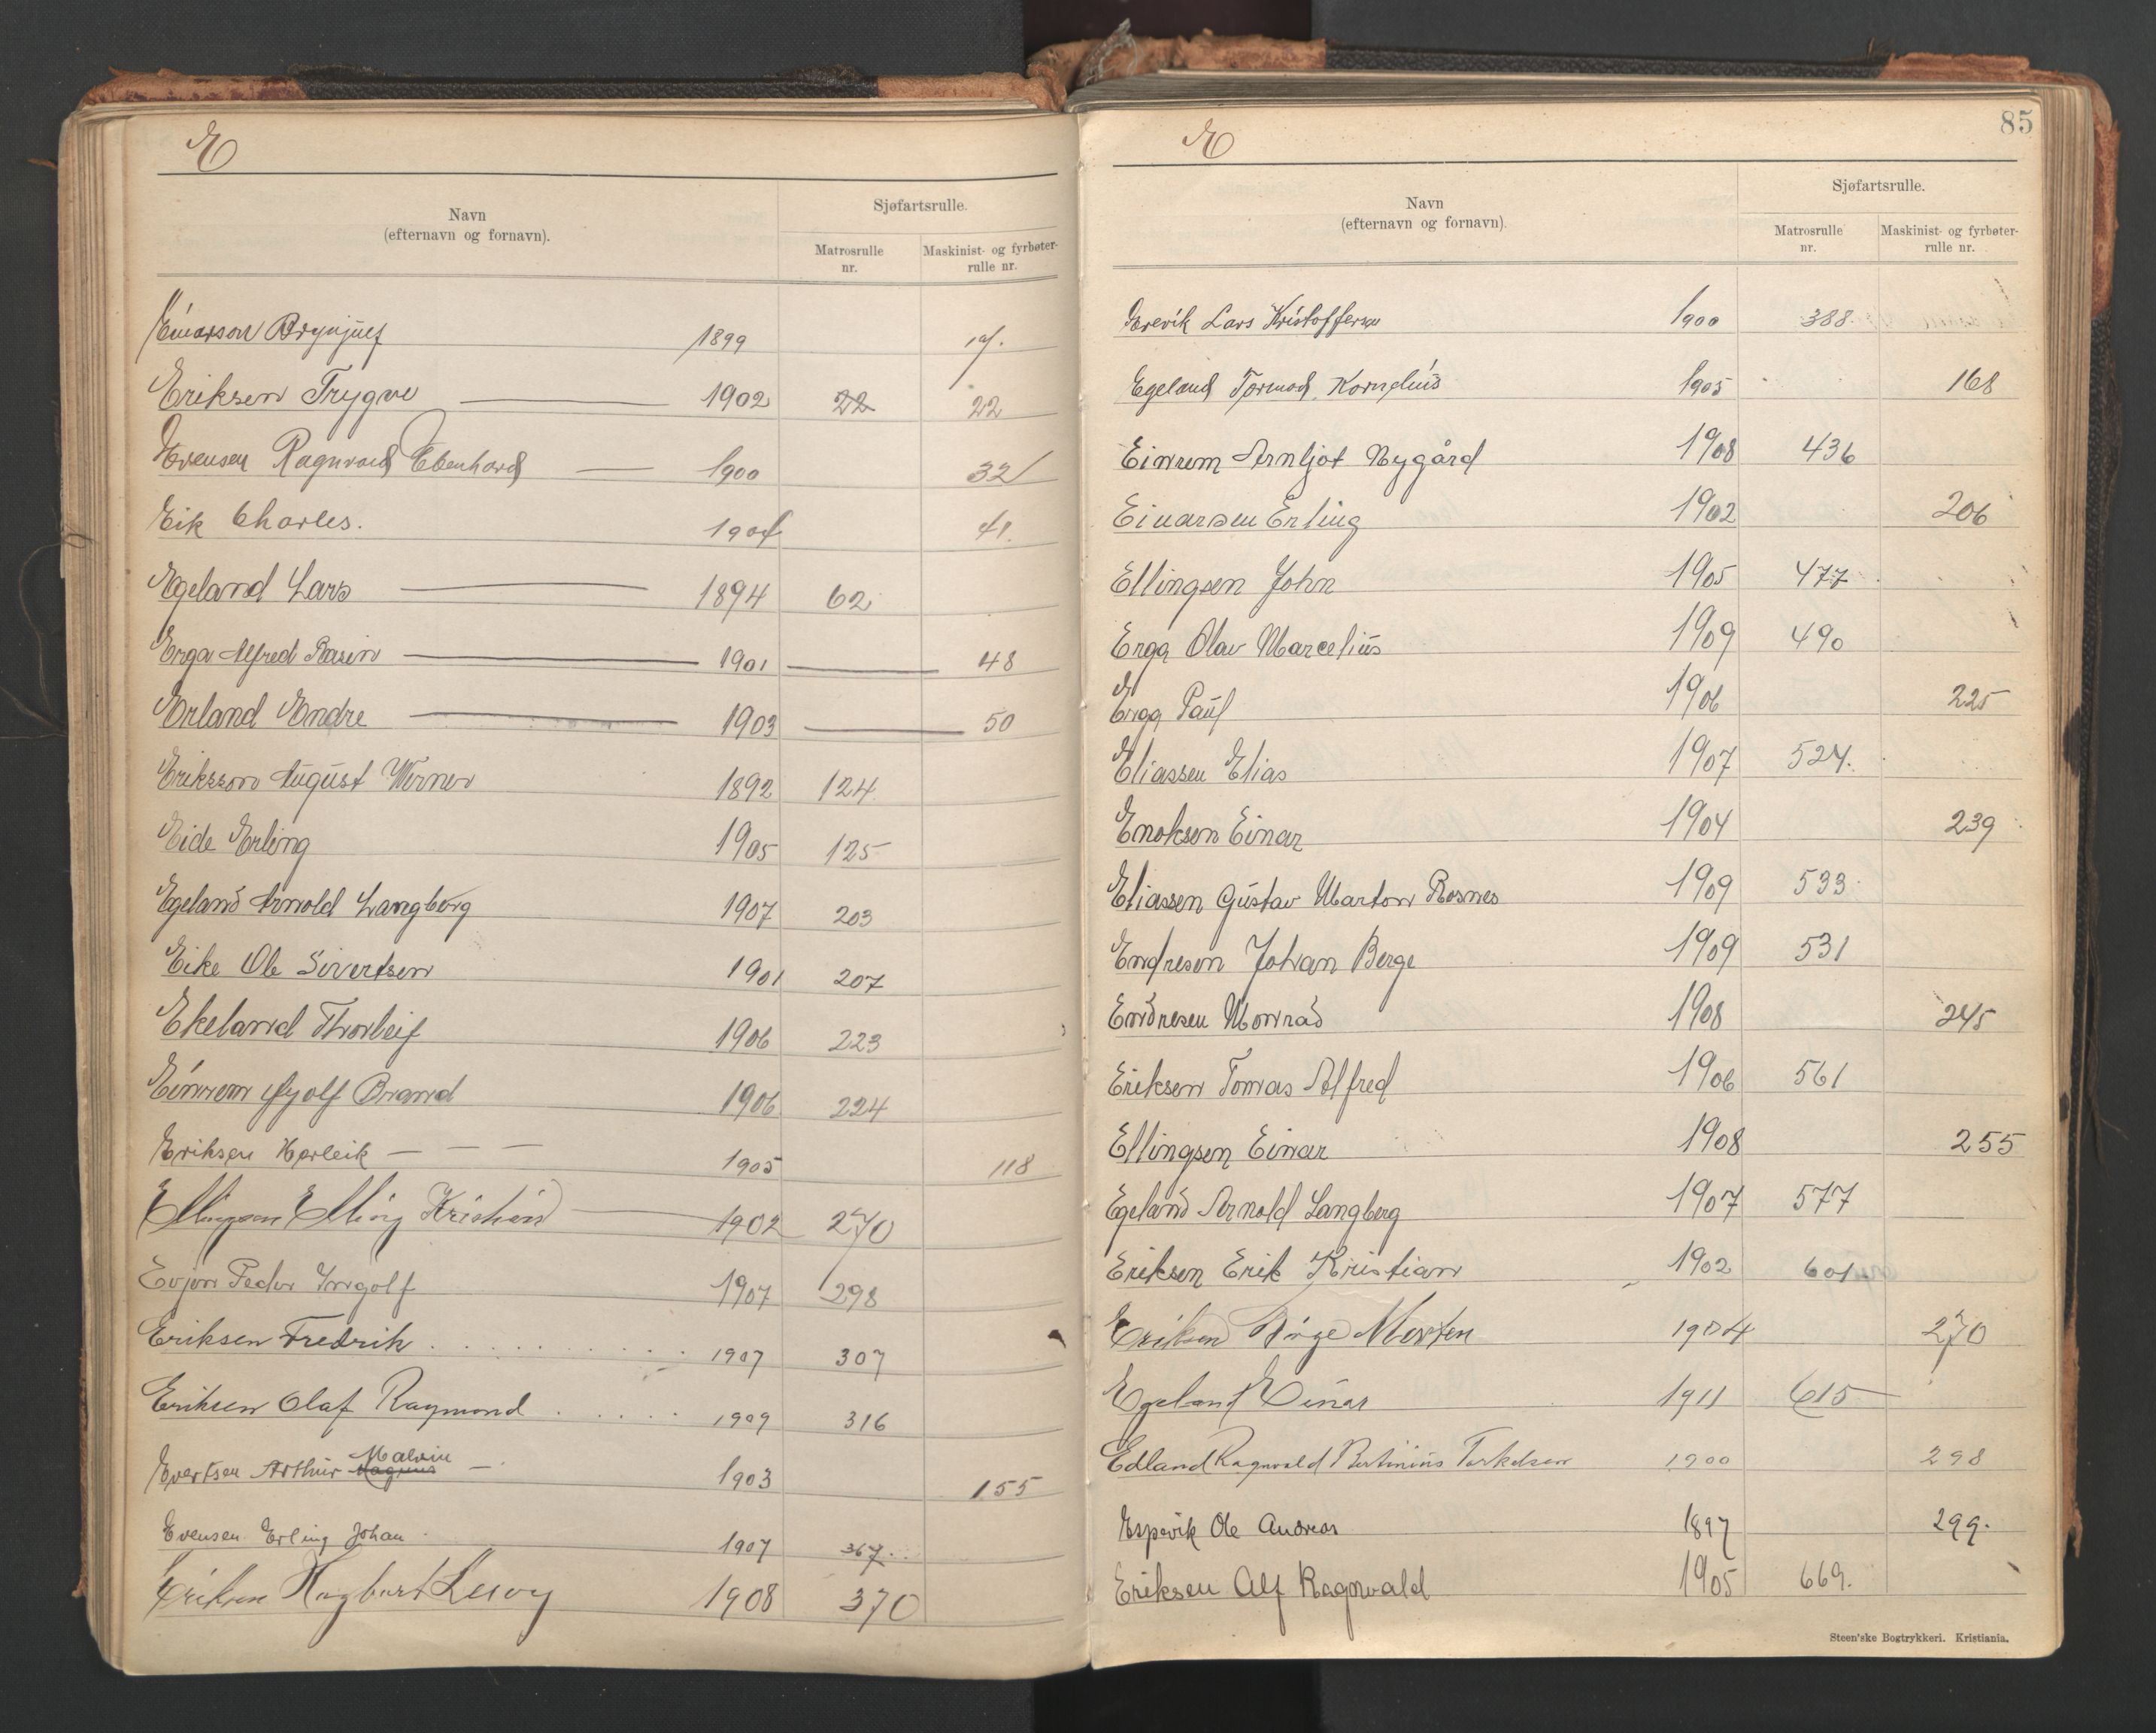 E
Navn
(efternavn og fornavn).
Sjøfartsrulle.
Matrosrulle
nr.
Maskinist- og fyrbøter-
rulle nr.
Einarson Brynjulf 1899 19.
Eriksen Trygve 1902 22 22
Evensen Ragnvald Ebenhard 1900 32
Eik Charles. 1904 41.
Egeland Lars 1894 62
Erga Alfred Rasin 1901 48
Erland Endre 1903 50
Eriksson August Werner 1892 124
Eide Erling 1905 125
Egeland Arnold Langberg 1907 203
Eike Ole Sivertsen 1901 207
Ekeland Thorleif 1906 223
Einrem Brand 1906 224
Eriksen Herleik 1905 118
Ellingsen Elling Kristian 1902 270
Evjen Peder Ingolf 1907 298
Eriksen Fredrik 1907 307
Eriksen Olaf Raymond 1909 316
Malvin
Evertsen Arthur Magnus 1903 155
Evensen Erling Johan 1907 367
Eriksen Hagbart 1908 370
E
85
Navn
(efternavn og fornavn).
Sjøfartsrulle.
Matrosrulle
nr.
Maskinist- og fyrbøter-
rulle nr.
Erevik Lars Kristoffersen 1900 388
Egeland Tormod Kornelius 1905 168
Einrem Arnljot Nygård 1908 436
Einarsen Erling 1902 206
Ellingsen John 1905 477
Erga Olav Marcelius 1909 490
Erga Paul 1906 225
Eliassen Elias 1907 524.
Enoksen Einar 1904 239
Eliassen Gustav Marton Rosnes 1909 533
Endresen Johan Berge 1909 531
Endresen Monrad 1908 245
Eriksen Tomas Alfred 1906 561
Ellingsen Einar 1908 255
Egeland Arnold Langberg 1907 577
Eriksen Erik Kristian 1902 601
Eriksen Birge Morten 1904 270
Egeland Einar 1911 615
Edland Ragnvald Bertinius Torkelsen 1900 298
Espevik Ole Andreas 1897 299.
Eriksen Alf Ragnvald 1905 669.
Steen'ske Bogtrykkeri. Kristiania.